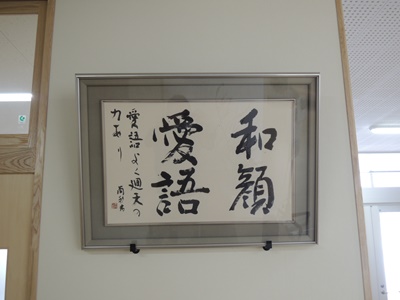 和顔
愛語
愛語よく廻天の
力あり